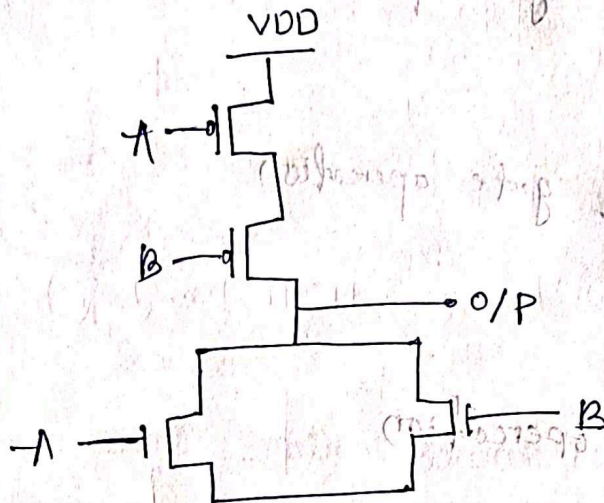 VDD
A
B
O/P
A
B